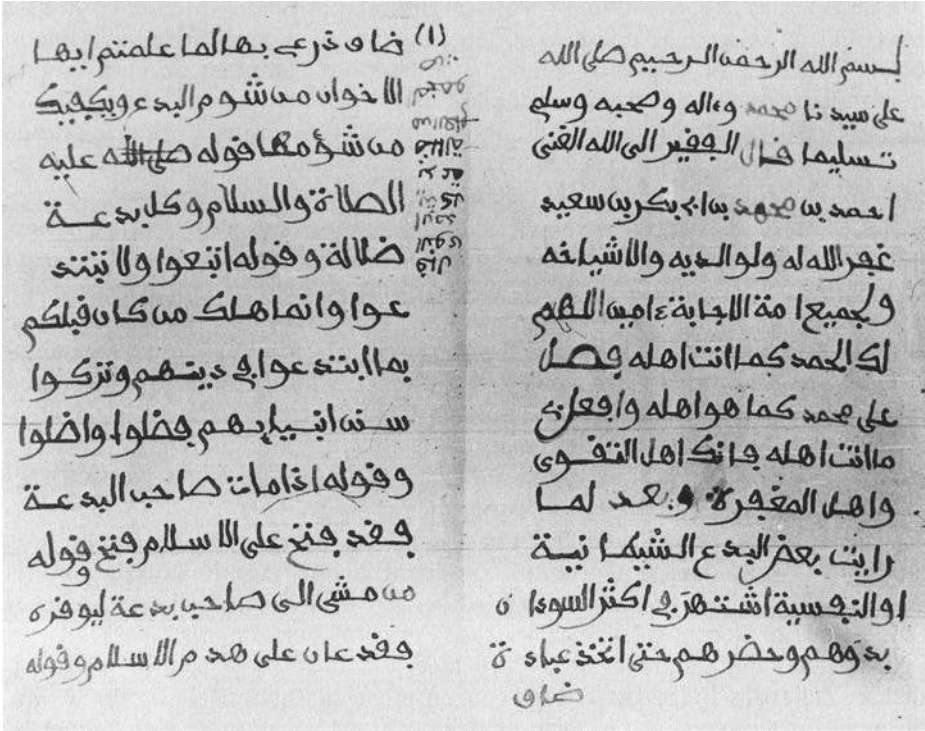 بسم الله الرحمن الرحيم صلى الله
على سيدنا محمد وءاله وصحبه وسلم
تسليما قال الفقير الى الله الغنى
احمد بن محمد بن ابى بكر بن سعيد
غفر الله له ولوالديه والاشياخه
ولجميع امة الاجابة ءامين اللهم
لك الحمد كما انت اهله فصل
على محمد كما هو اهله وافعل بى
ما انت اهله فانك اهل التقوى
واهل المغفرة وبعد لما
رايت بعض البدع الشيطانية
او النفسية اشتهر فى اكثر السودان
بدوهم وحضرهم حتى اتخذ عبادة
ضاق
(1) ضاق ذرعى بها لما علمتم ايها
الاخوان من شوم البدع ويكفيك
من شؤمها قوله صلى الله عليه
الصلاة والسلام وكل بدعة
ضلالة وقوله اتبعوا ولا تبتد
عوا وانما هلك من كان قبلكم
بما ابتدعوا فى دينهم وتركوا
سنن انبيايهم فضلوا واضلوا
وقوله اذا مات صاحب البدعة
فقد فتح على الاسلام فتح وقوله
من مشى الى صاحب بدعة ليوقره
فقد عان على هدم الاسلام وقوله